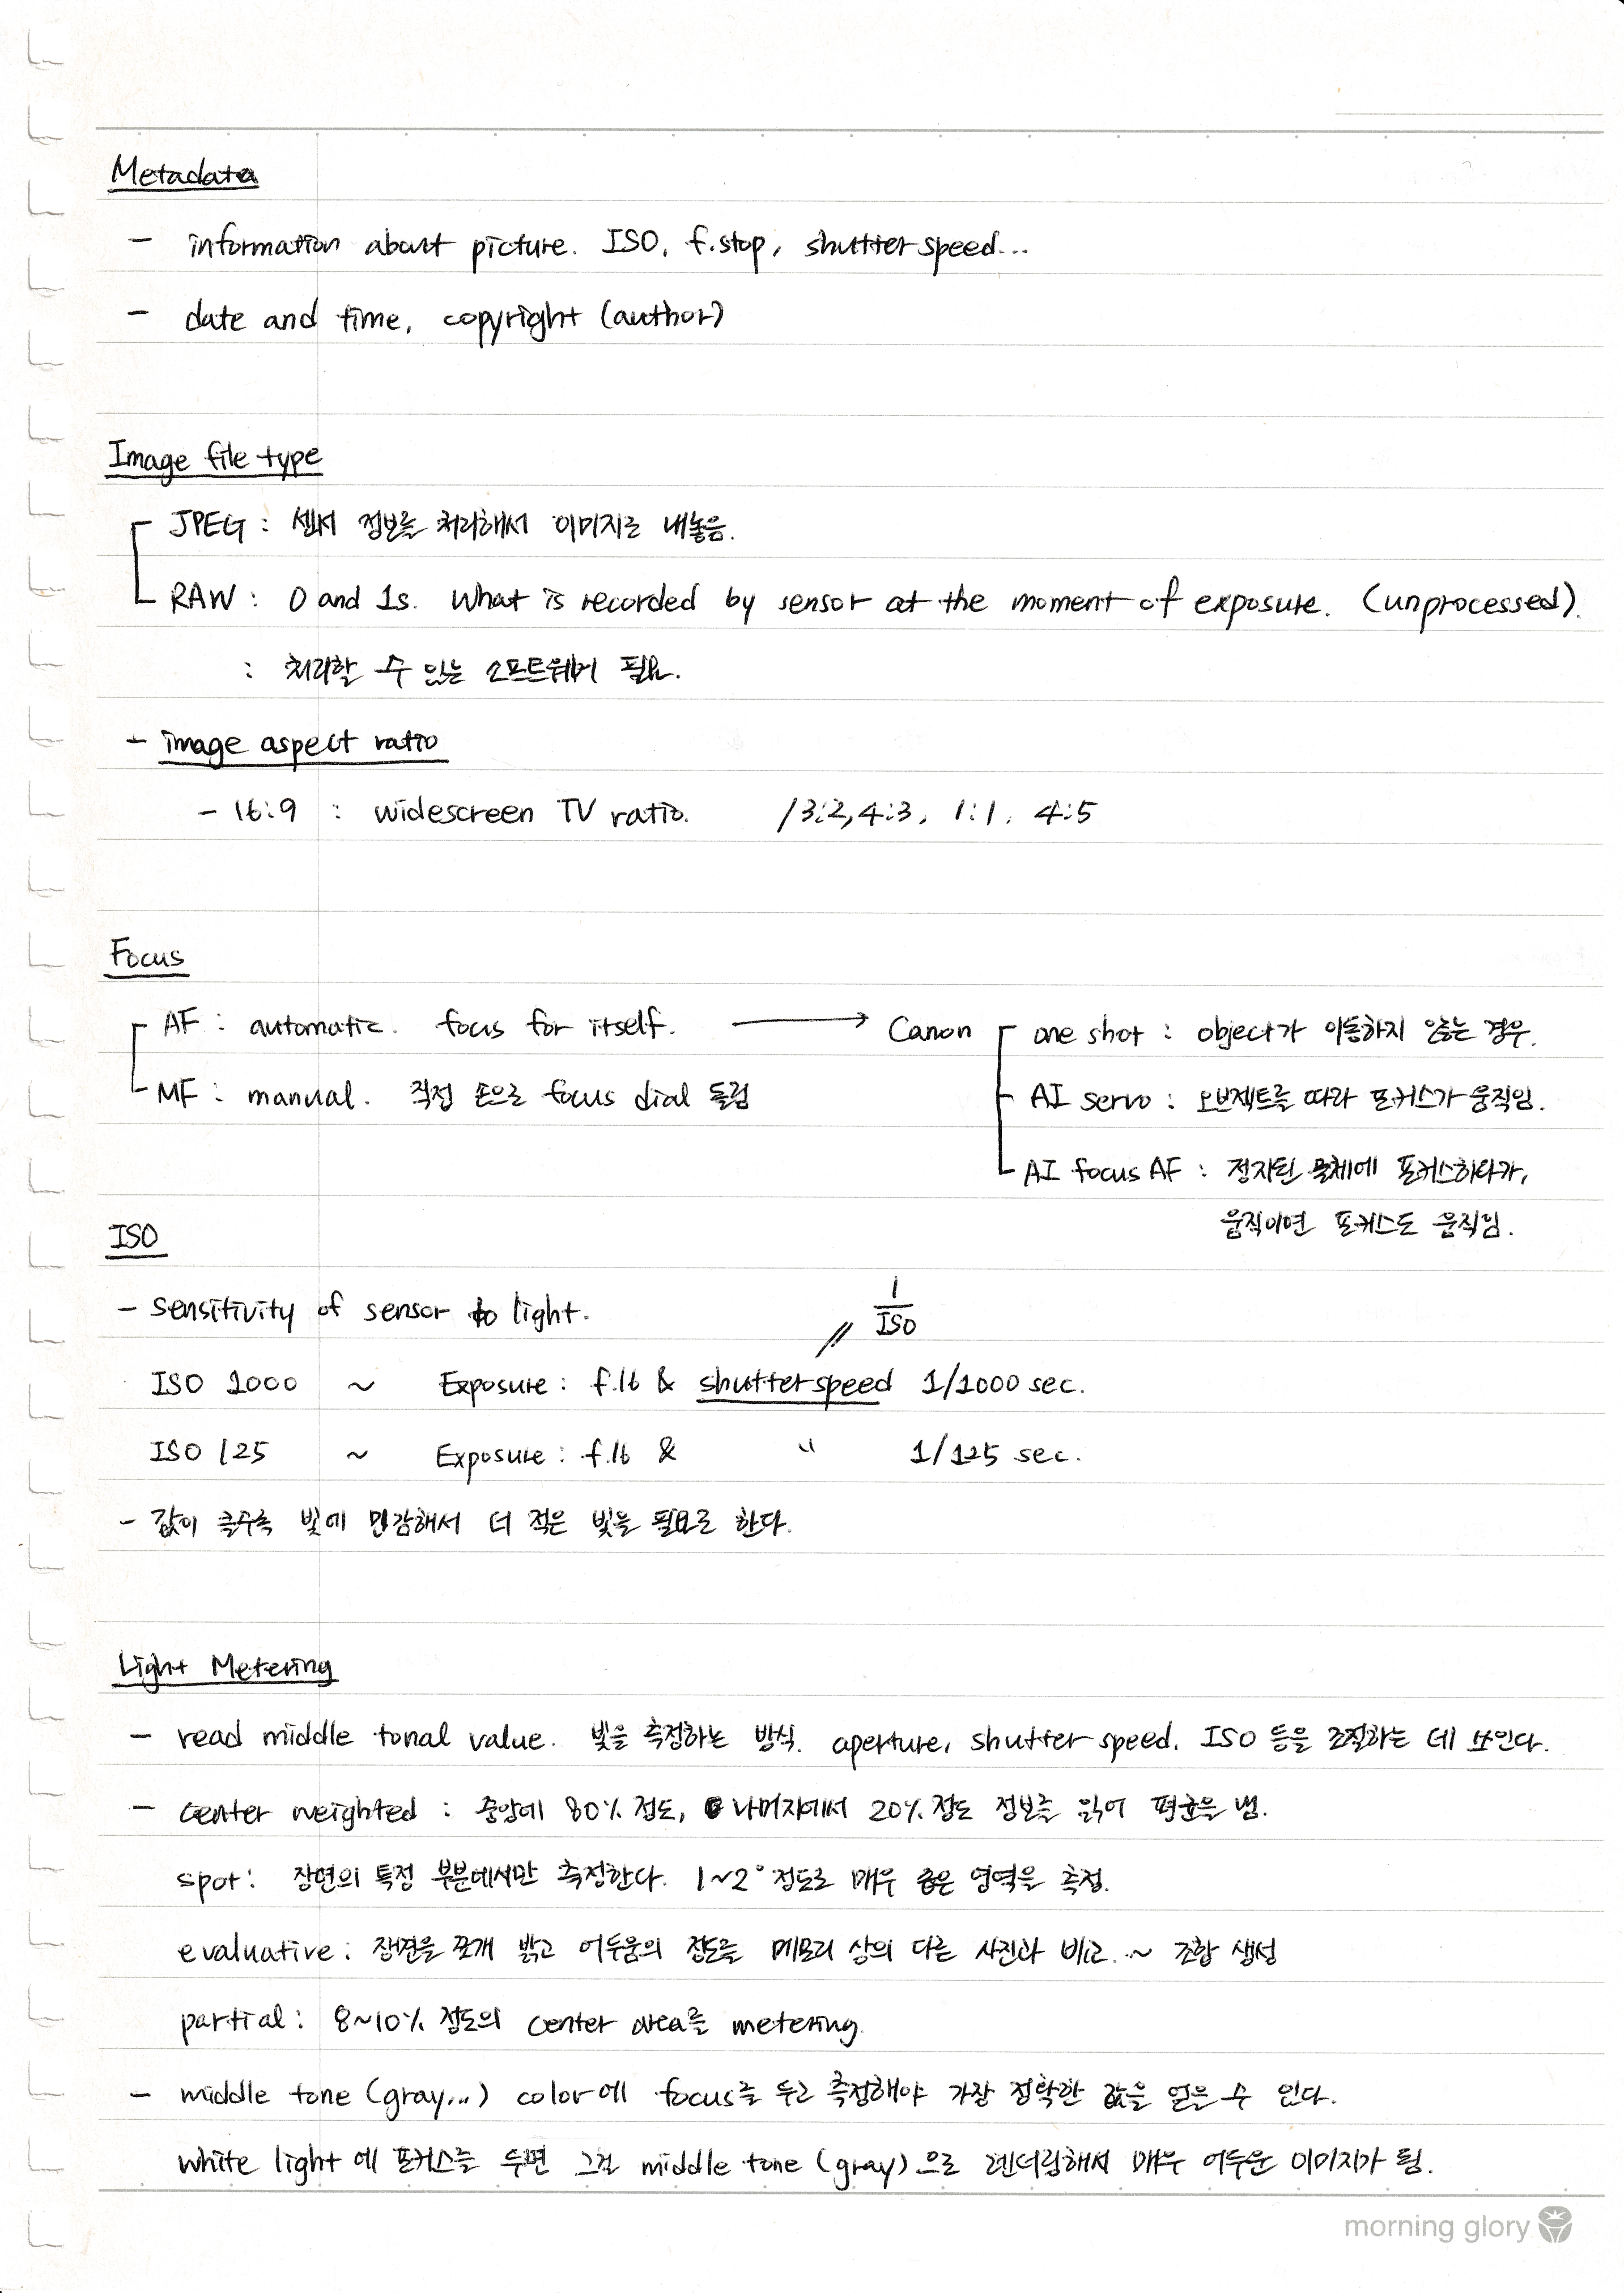 Metadata
- information about picture. ISO, f.stop, shutter speed...
- date and time, copyright (author)
Image file type
JPEG : 센서 정보를 처리해서 이미지로 내놓음.
RAW : 0 and 1s. What is recorded by sensor at the moment of exposure. (unprocessed).
: 처리할 수 있는 소프트웨어 필요.
- image aspect ratio
- 16:9 : widescreen TV ratio. / 3:2, 4:3, 1:1, 4:5
Focus
AF : automatic. focus for itself. → Canon one shot : object가 이동하지 않는 경우.
MF : manual. 직접 손으로 focus dial 돌림 AI servo : 오브젝트를 따라 포커스가 움직임.
AI focus AF : 정지된 물체에 포커스하다가,
움직이면 포커스도 움직임.
ISO
- sensitivity of sensor to light. 1/ISO
ISO 1000 ~ Exposure : f.16 & shutter speed 1/1000 sec.
ISO 125 ~ Exposure : f.16 & " 1/125 sec.
- 값이 클수록 빛에 민감해서 더 적은 빛을 필요로 한다.
Light Metering
- read middle tonal value. 빛을 측정하는 방식. aperture, shutter speed, ISO 등을 조절하는 데 쓰인다.
- center weighted : 중앙에 80% 정도, 나머지에서 20% 정도 정보를 읽어 평균을 냄.
spot : 장면의 특정 부분에서만 측정한다. 1~2° 정도로 매우 좁은 영역을 측정.
evaluative : 장면을 쪼개 밝고 어두움의 정도를 메모리 상의 다른 사진과 비교. ~ 조합 생성
partial : 8~10% 정도의 center area를 metering.
- middle tone (gray...) color에 focus를 두고 측정해야 가장 정확한 값을 얻을 수 있다.
white light 에 포커스를 두면 그걸 middle tone (gray) 으로 렌더링해서 매우 어두운 이미지가 됨.
morning glory